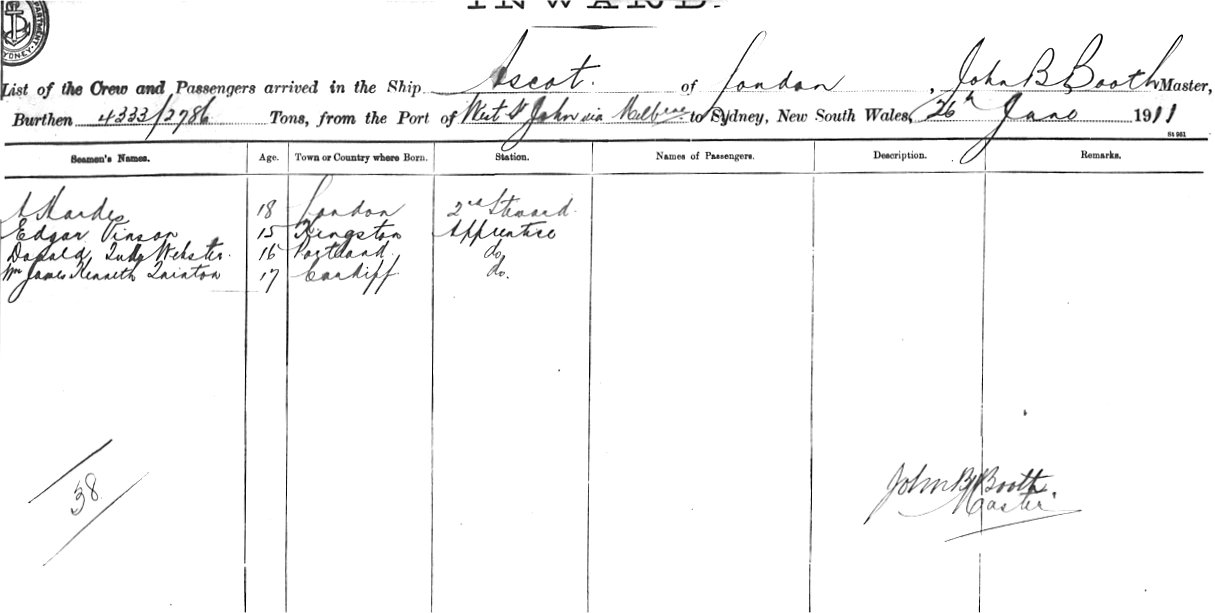 INWARD.
DEPARTMENT SYDNEY
List of the Crew and Passengers arrived in the Ship Ascot. of London , John B Booth Master,
Burthen 4333/2786 Tons, from the Port of West St John via Melbne to Sydney, New South Wales, 26th June 1911
St 961
Seamen's Names. Age. Town or Country where Born. Station. Names of Passengers. Description. Remarks.
A Hardes 18 London 2nd Steward
Edgar Vinson 15 Kingston Apprentice
Donald Webster. 16 Portland. do
Wm James Kenneth Tainton 17 Cardiff. do.
38
John B Booth.
Master